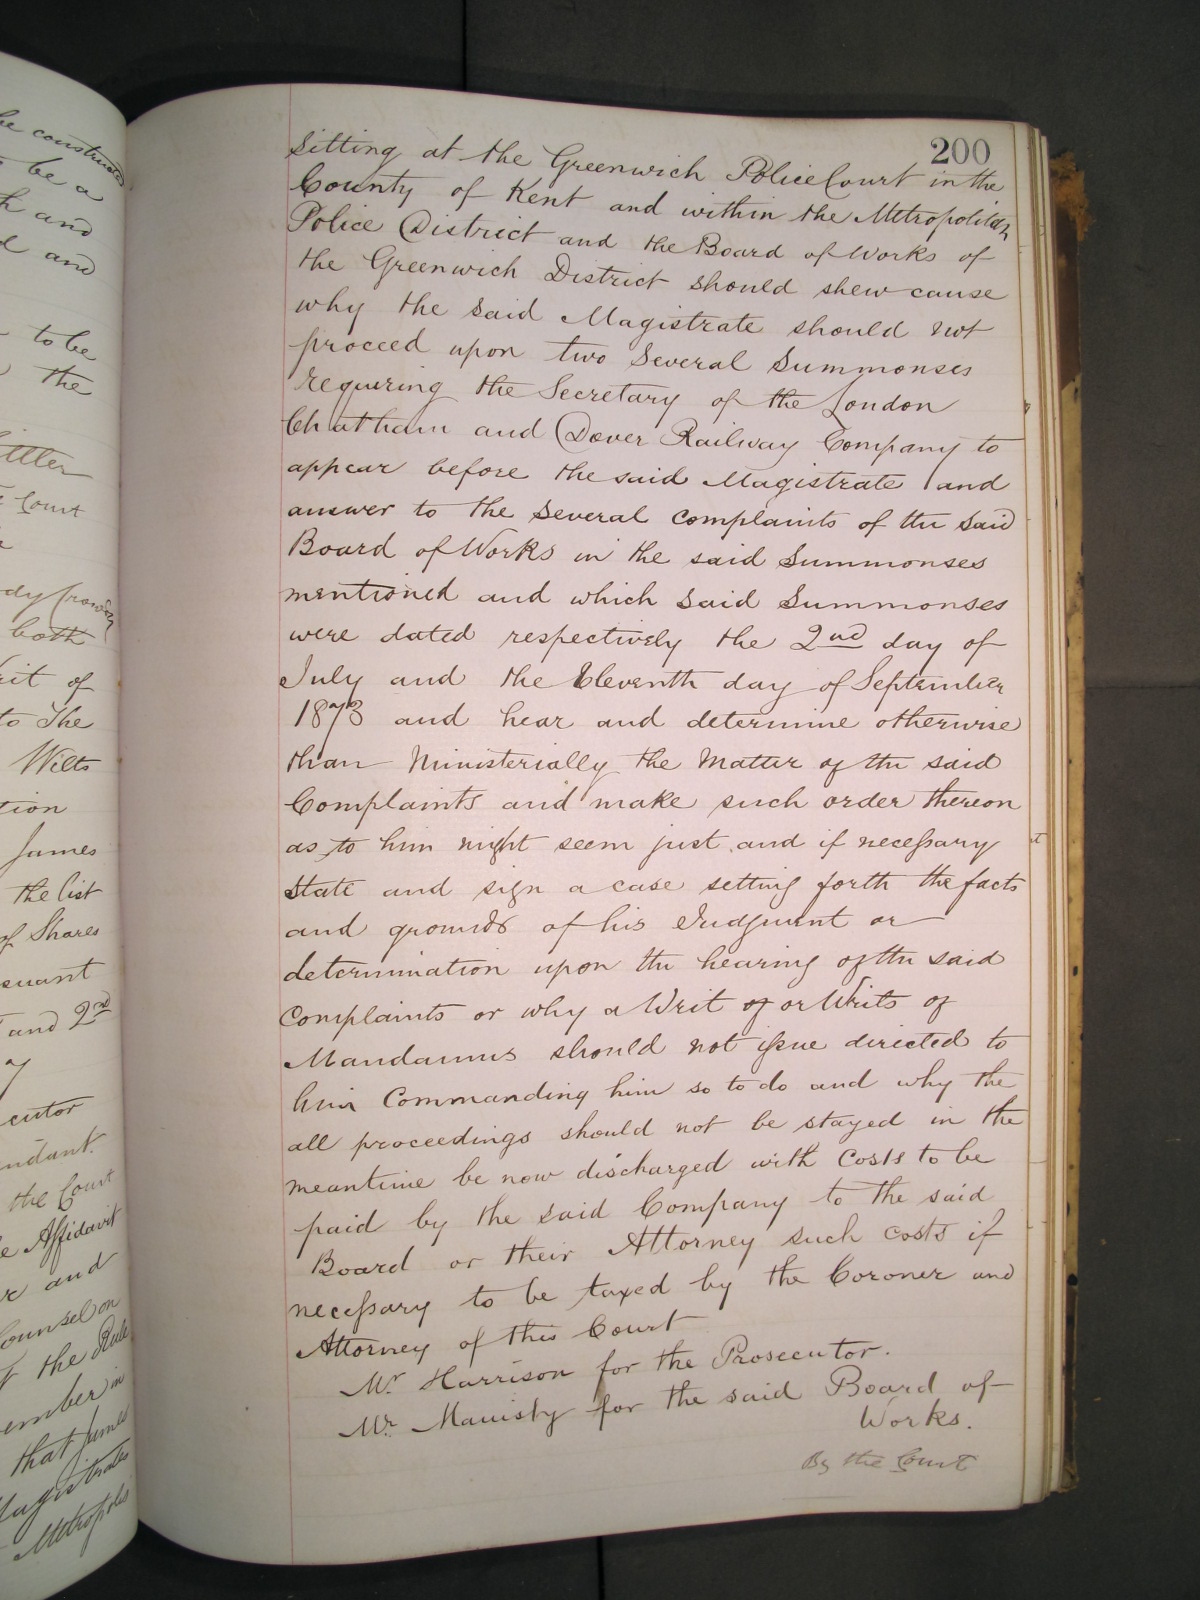 be constructed
to be a
and
and
to be
the
Court
both
Writ of
to The
Wilts
James
the list
of Shares
and 2nd
the Court
Affidavit
and
Counsel on
of the Rule
in
that James
Magistrates
Metropolis
200
sitting at the Greenwich Police Court in the
County of Kent and within the Metropolitan
Police District and the Board of Works of
the Greenwich District should shew cause
why the said Magistrate should not
proceed upon two several Summonses
requiring the Secretary of the London
Chatham and Dover Railway Company to
appear before the said Magistrate and
answer to the several complaints of the said
Board of Works in the said Summonses
mentioned and which said Summonses
were dated respectively the 2nd day of
July and the Eleventh day of September
1873 and hear and determine otherwise
than Ministerially the Matter of the said
Complaints and make such order thereon
as to him might seem just and if necessary
state and sign a case setting forth the facts
and grounds of his Judgment or
determination upon the hearing of the said
Complaints or why a Writ of or Writs of
Mandamus should not issue directed to
him Commanding him so to do and why the
all proceedings should not be stayed in the
meantime be now discharged with Costs to be
paid by the said Company to the said
Board or their Attorney such costs if
necessary to be taxed by the Coroner and
Attorney of this Court
Mr Harrison for the Prosecutor.
Mr. Manisty for the said Board of
Works.
By the Court